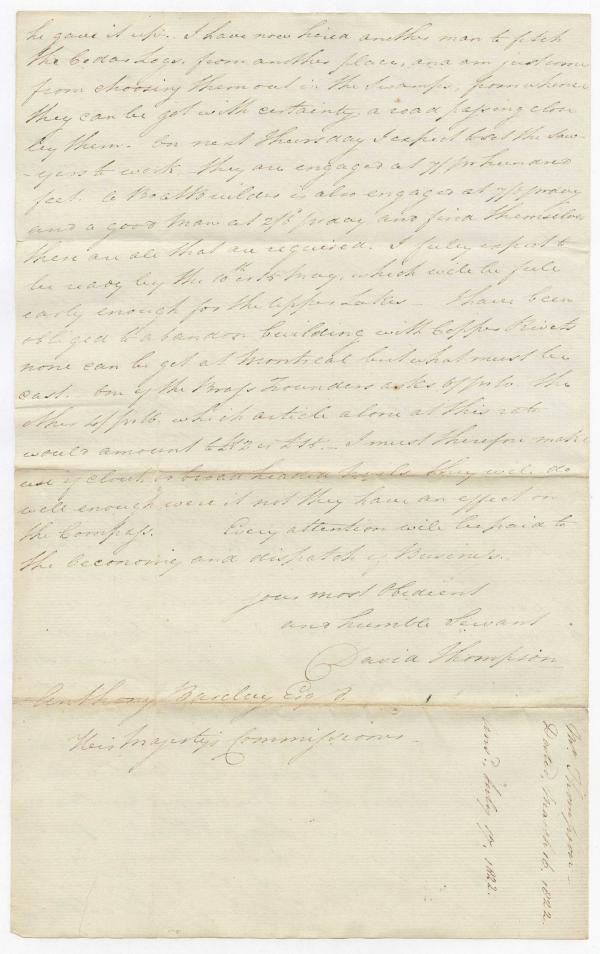 he gave it up. I have now hired another man to fetch
the Cedar Logs, from another place, and am just come
from choosing them out in the Swamps, from whence
they can be got with certainty, a road passing close
by them. On next Thursday I expect to set the Saw-
-yers to work, they are engaged at 7/ pr hundred
feet. A Boatbuilder is also engaged at 7/6 pr day
and a good man at 2/6 pr day and find themselves
these are all that are required. I fully expect to
be ready by the 10th or 15 May, which will be full
early enough for the Upper Lakes _ I have been
obliged to abandon building with Copper Rivets
none can be got at Montreal but what must be
cast. One of the Brass Founders asks 6/ pr lb. the
other 4/ pr lb, which article alone at this rate
would amount to £12 or £18._ I must therefore make
use of clout or broad headed Nails they will do
well enough were it not they have an effect on
the Compass. Every attention will be paid to
the Oeconomy and dispatch of Business.
your most Obedient
and humble Servant
David Thompson
Anthony Barclay Esqr.
His Majesty's Commissioner _
Mr. Thompson _
Dated, March 16, 1822.
Ansd. July 1822.